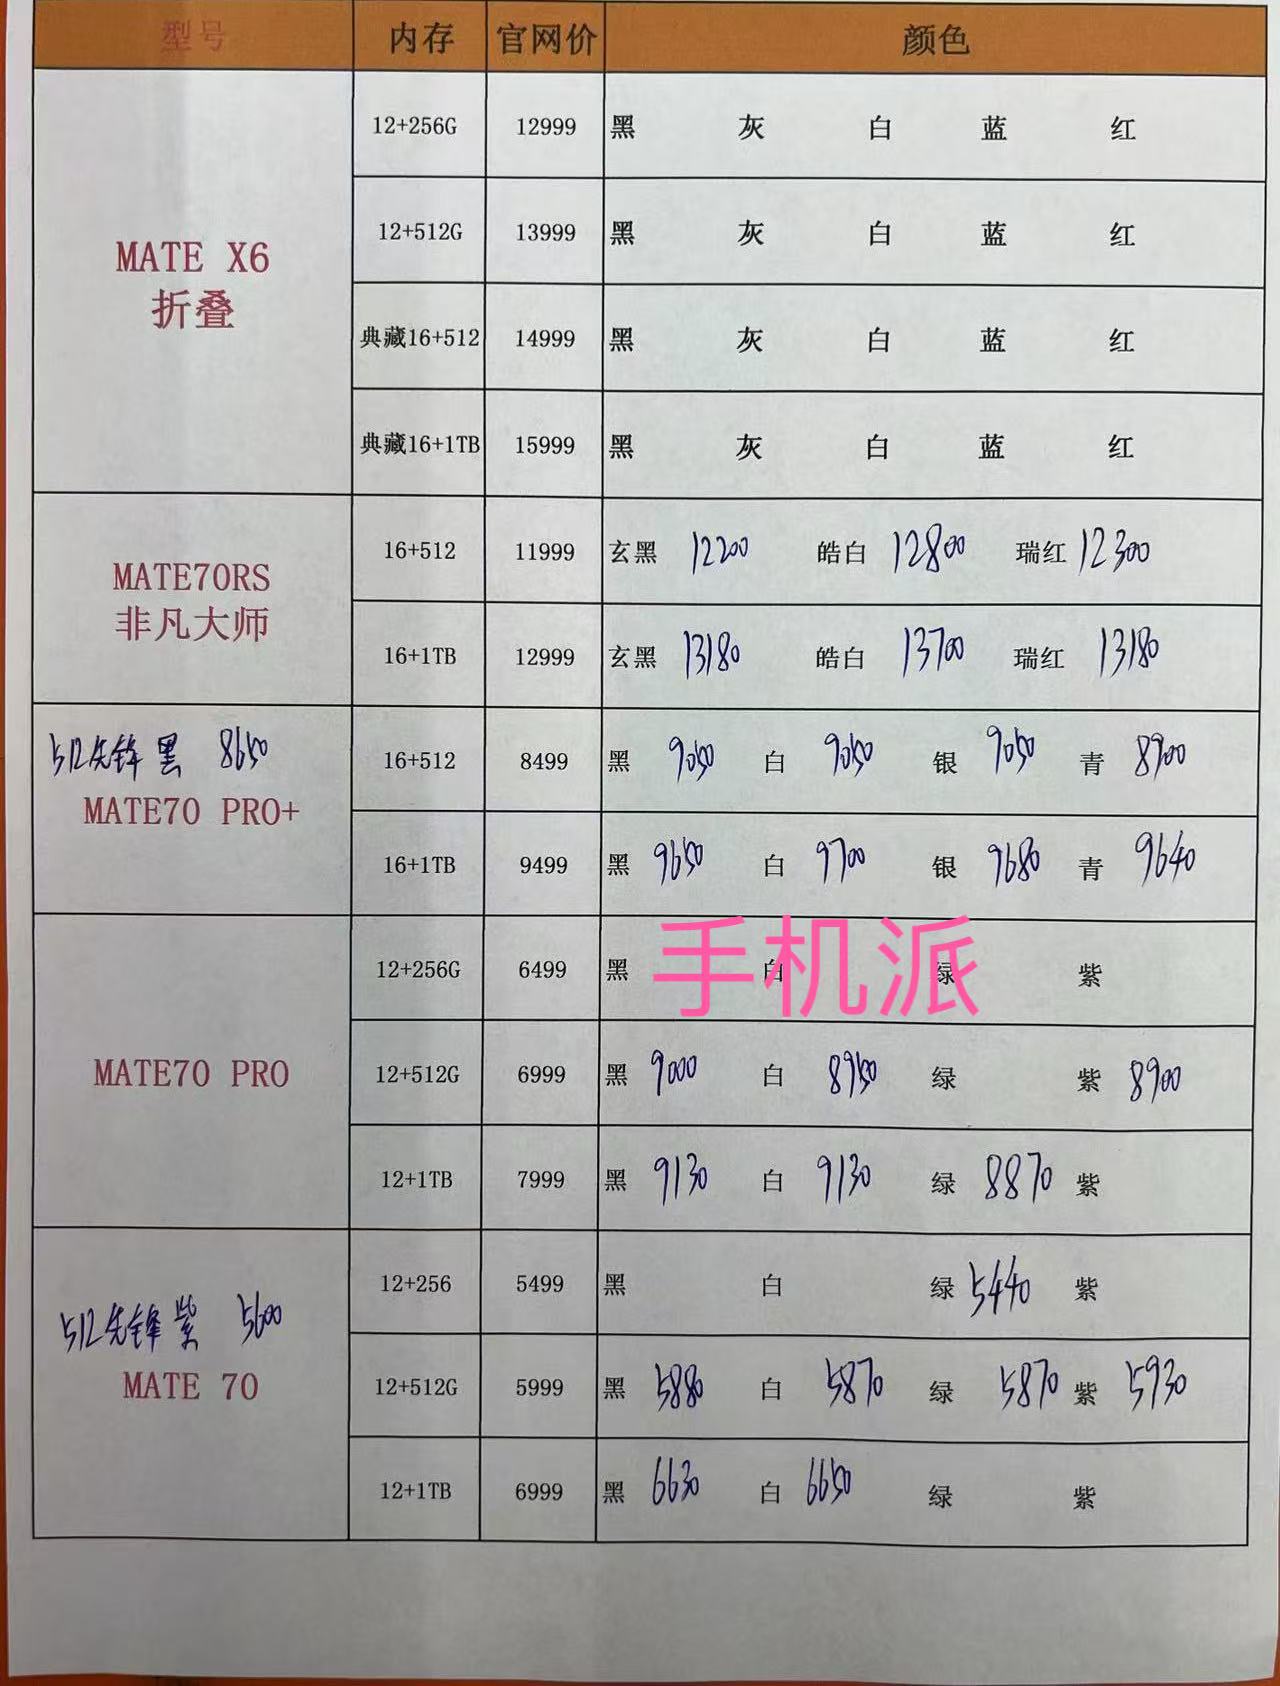 型号 内存 官网价 颜色
12+256G 12999 黑 灰 白 蓝 红
12+512G 13999 黑 灰 白 蓝 红
MATE X6
折叠
典藏16+512 14999 黑 灰 白 蓝 红
典藏16+1TB 15999 黑 灰 白 蓝 红
16+512 11999 玄黑 12200 皓白 12800 瑞红 12300
MATE70RS
非凡大师
16+1TB 12999 玄黑 13180 皓白 13700 瑞红 13180
512先锋 黑 8650
16+512 8499 黑 9050 白 9050 银 9050 青 8900
MATE70 PRO+
16+1TB 9499 黑 9650 白 9700 银 9680 青 9640
手机派
12+256G 6499 黑 白 绿 紫
MATE70 PRO
12+512G 6999 黑 9000 白 8950 绿 紫 8900
12+1TB 7999 黑 9130 白 9130 绿 8870 紫
12+256 5499 黑 白 绿 5440 紫
512先锋 紫 5600
MATE 70
12+512G 5999 黑 5880 白 5870 绿 5870 紫 5930
12+1TB 6999 黑 6630 白 6650 绿 紫